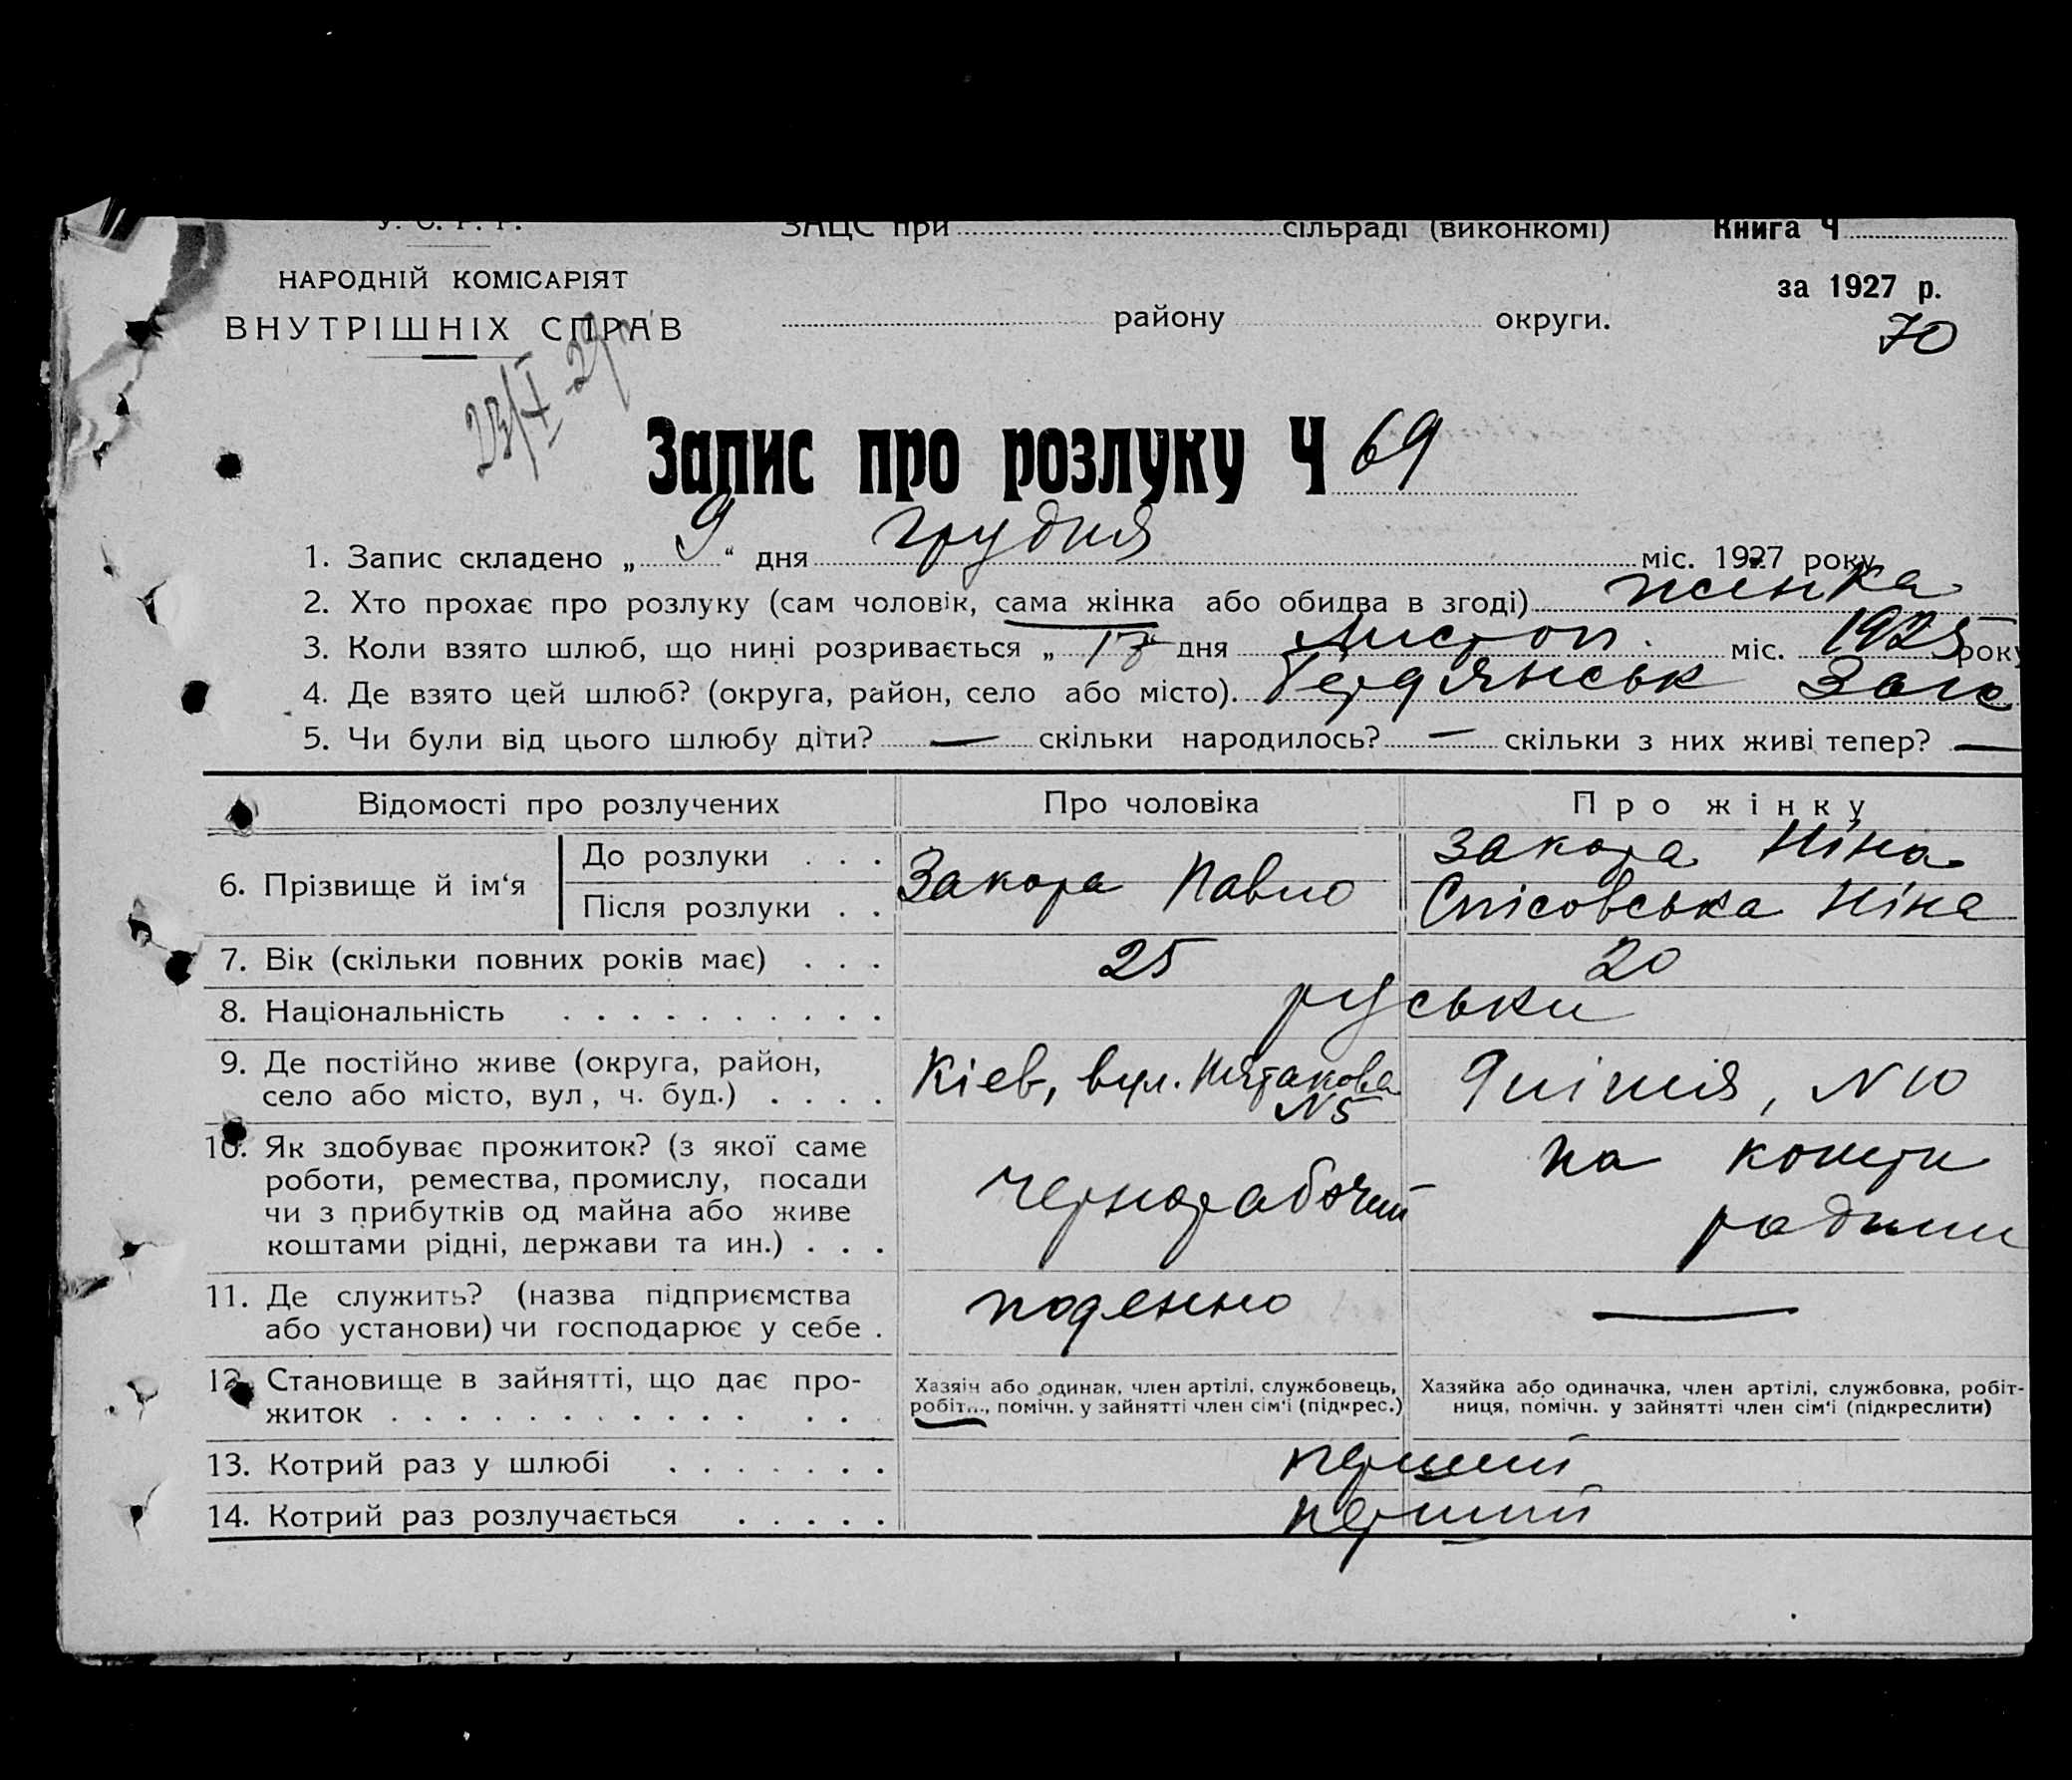 У. С. Р. Р.
ЗАЦС при сільраді (виконкомі) Книга Ч
НАРОДНІЙ КОМІСАРІЯТ
за 1927 р.
ВНУТРІШНІХ СПРАВ
району округи.
70
Запис про розлуку Ч 69
1. Запис складено „ 9 “ дня грудня міс. 1927 року
2. Хто прохає про розлуку (сам чоловік, сама жінка або обидва в згоді) жінка
3. Коли взято шлюб, що нині розривається „ 17 “ дня листоп. міс. 1925 року
4. Де взято цей шлюб? (округа, район, село або місто). Бердянськ Загс
5. Чи були від цього шлюбу діти? — скільки народилось? — скільки з них живі тепер? —
Відомості про розлучених Про чоловіка Про жінку
6. Прізвище й ім‘я
До розлуки . . . Закора Павло Закора Ніна
Після розлуки . . Ніна
7. Вік (скільки повних років має) . . . 25 20
8. Національність . . . . . . . . . . руськи
9. Де постійно живе (округа, район,
село або місто, вул , ч. буд.) . . . .
Кіев, вул. Пятакова
N 5
N 10
10. Як здобуває прожиток? (з якої саме
роботи, ремества, промислу, посади
чи з прибутків од майна або живе
коштами рідні, держави та ин.) . . .
чернорабочий
на кошти
родини
11. Де служить? (назва підприємства
або установи) чи господарює у себе .
поденно
—
12. Становище в зайнятті, що дає про-
житок . . . . . . . . . . . . . .
Хазяїн або одинак, член артілі, службовець,
робіт..., помічн. у зайнятті член сім‘ї (підкрес.)
Хазяйка або одиначка, член артілі, службовка, робіт-
ниця, помічн. у зайнятті член сім‘ї (підкреслити)
13. Котрий раз у шлюбі . . . . . . . перший
14. Котрий раз розлучається . . . . . перший